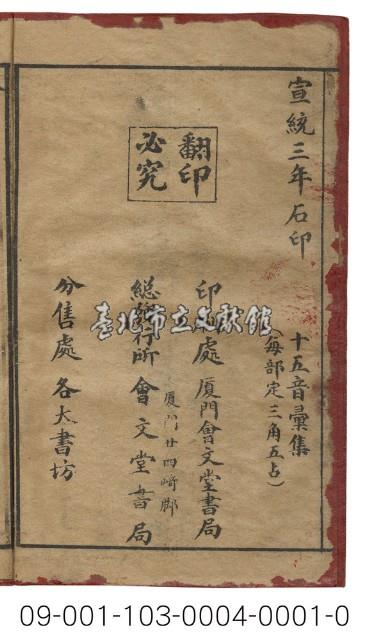 宣統三年石印
十五音彙集
(每部定三角五占)
翻印
必究
印 處 厦門會文堂書局
厦門廿四崎脚
總發行所 會文堂書局
分售處 各大書坊
臺北市立文獻館
09-001-103-0004-0001-0